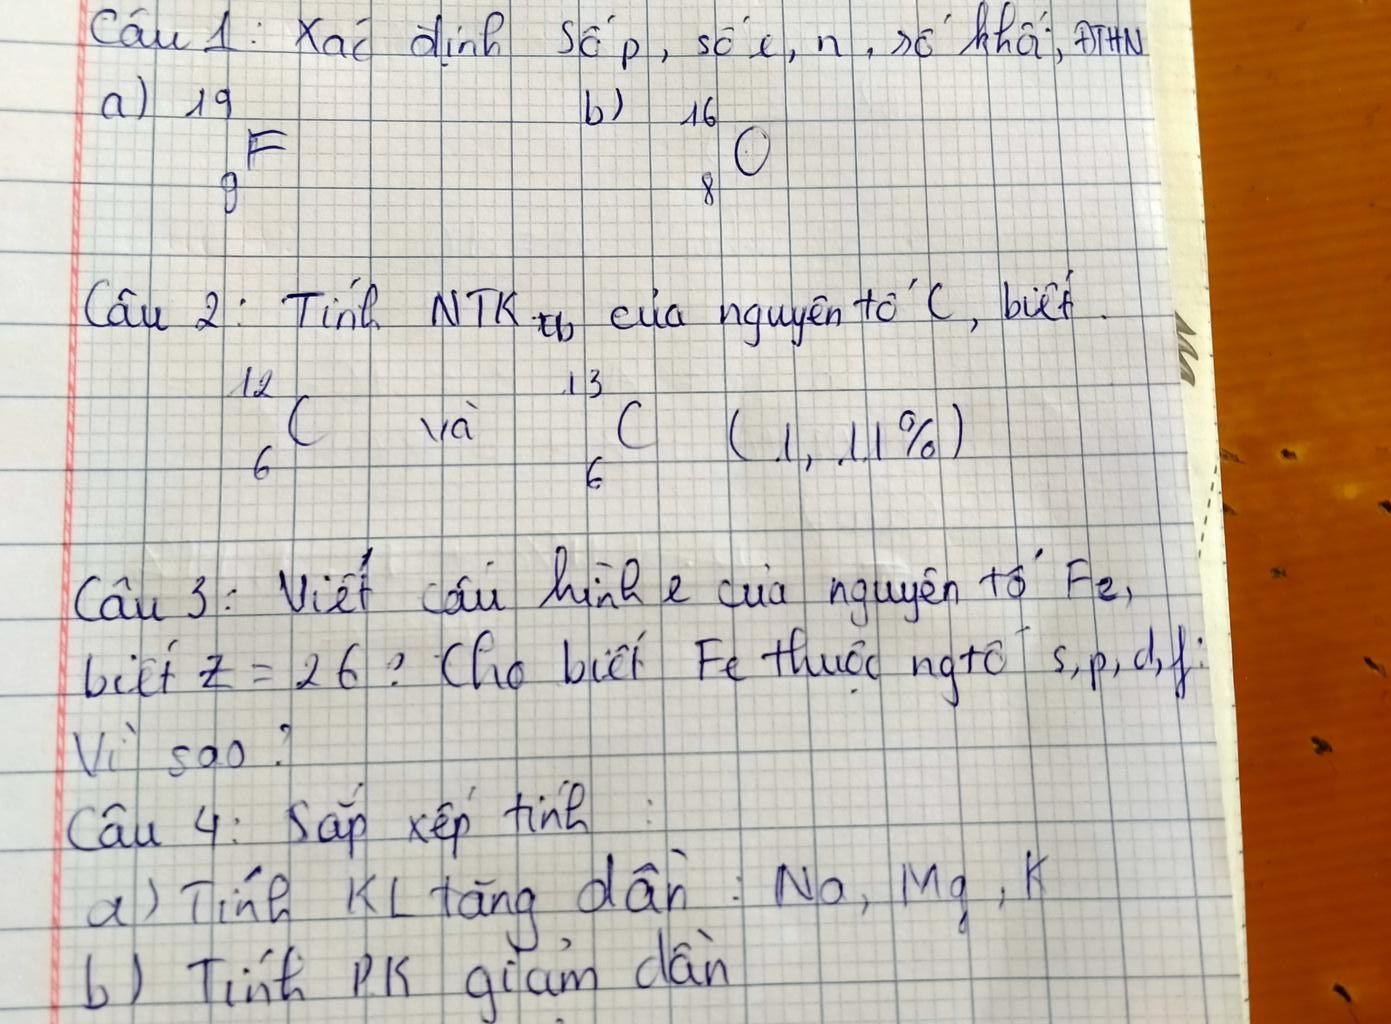 Câu 1: Xác định số p, số e, n, số khối, ĐTHN
a) ¹⁹₉F b) ¹⁶₈O
Câu 2: Tính NTK tb của nguyên tố C, biết.
¹²₆C và ¹³₆C (1,11%)
Câu 3: Viết cấu hình e của nguyên tố Fe,
biết Z = 26? Cho biết Fe thuộc ngtố s, p, d, f.
Vì sao?
Câu 4: Sắp xếp tính :
a) Tính KL tăng dần: Na, Mg, K
b) Tính PK giảm dần